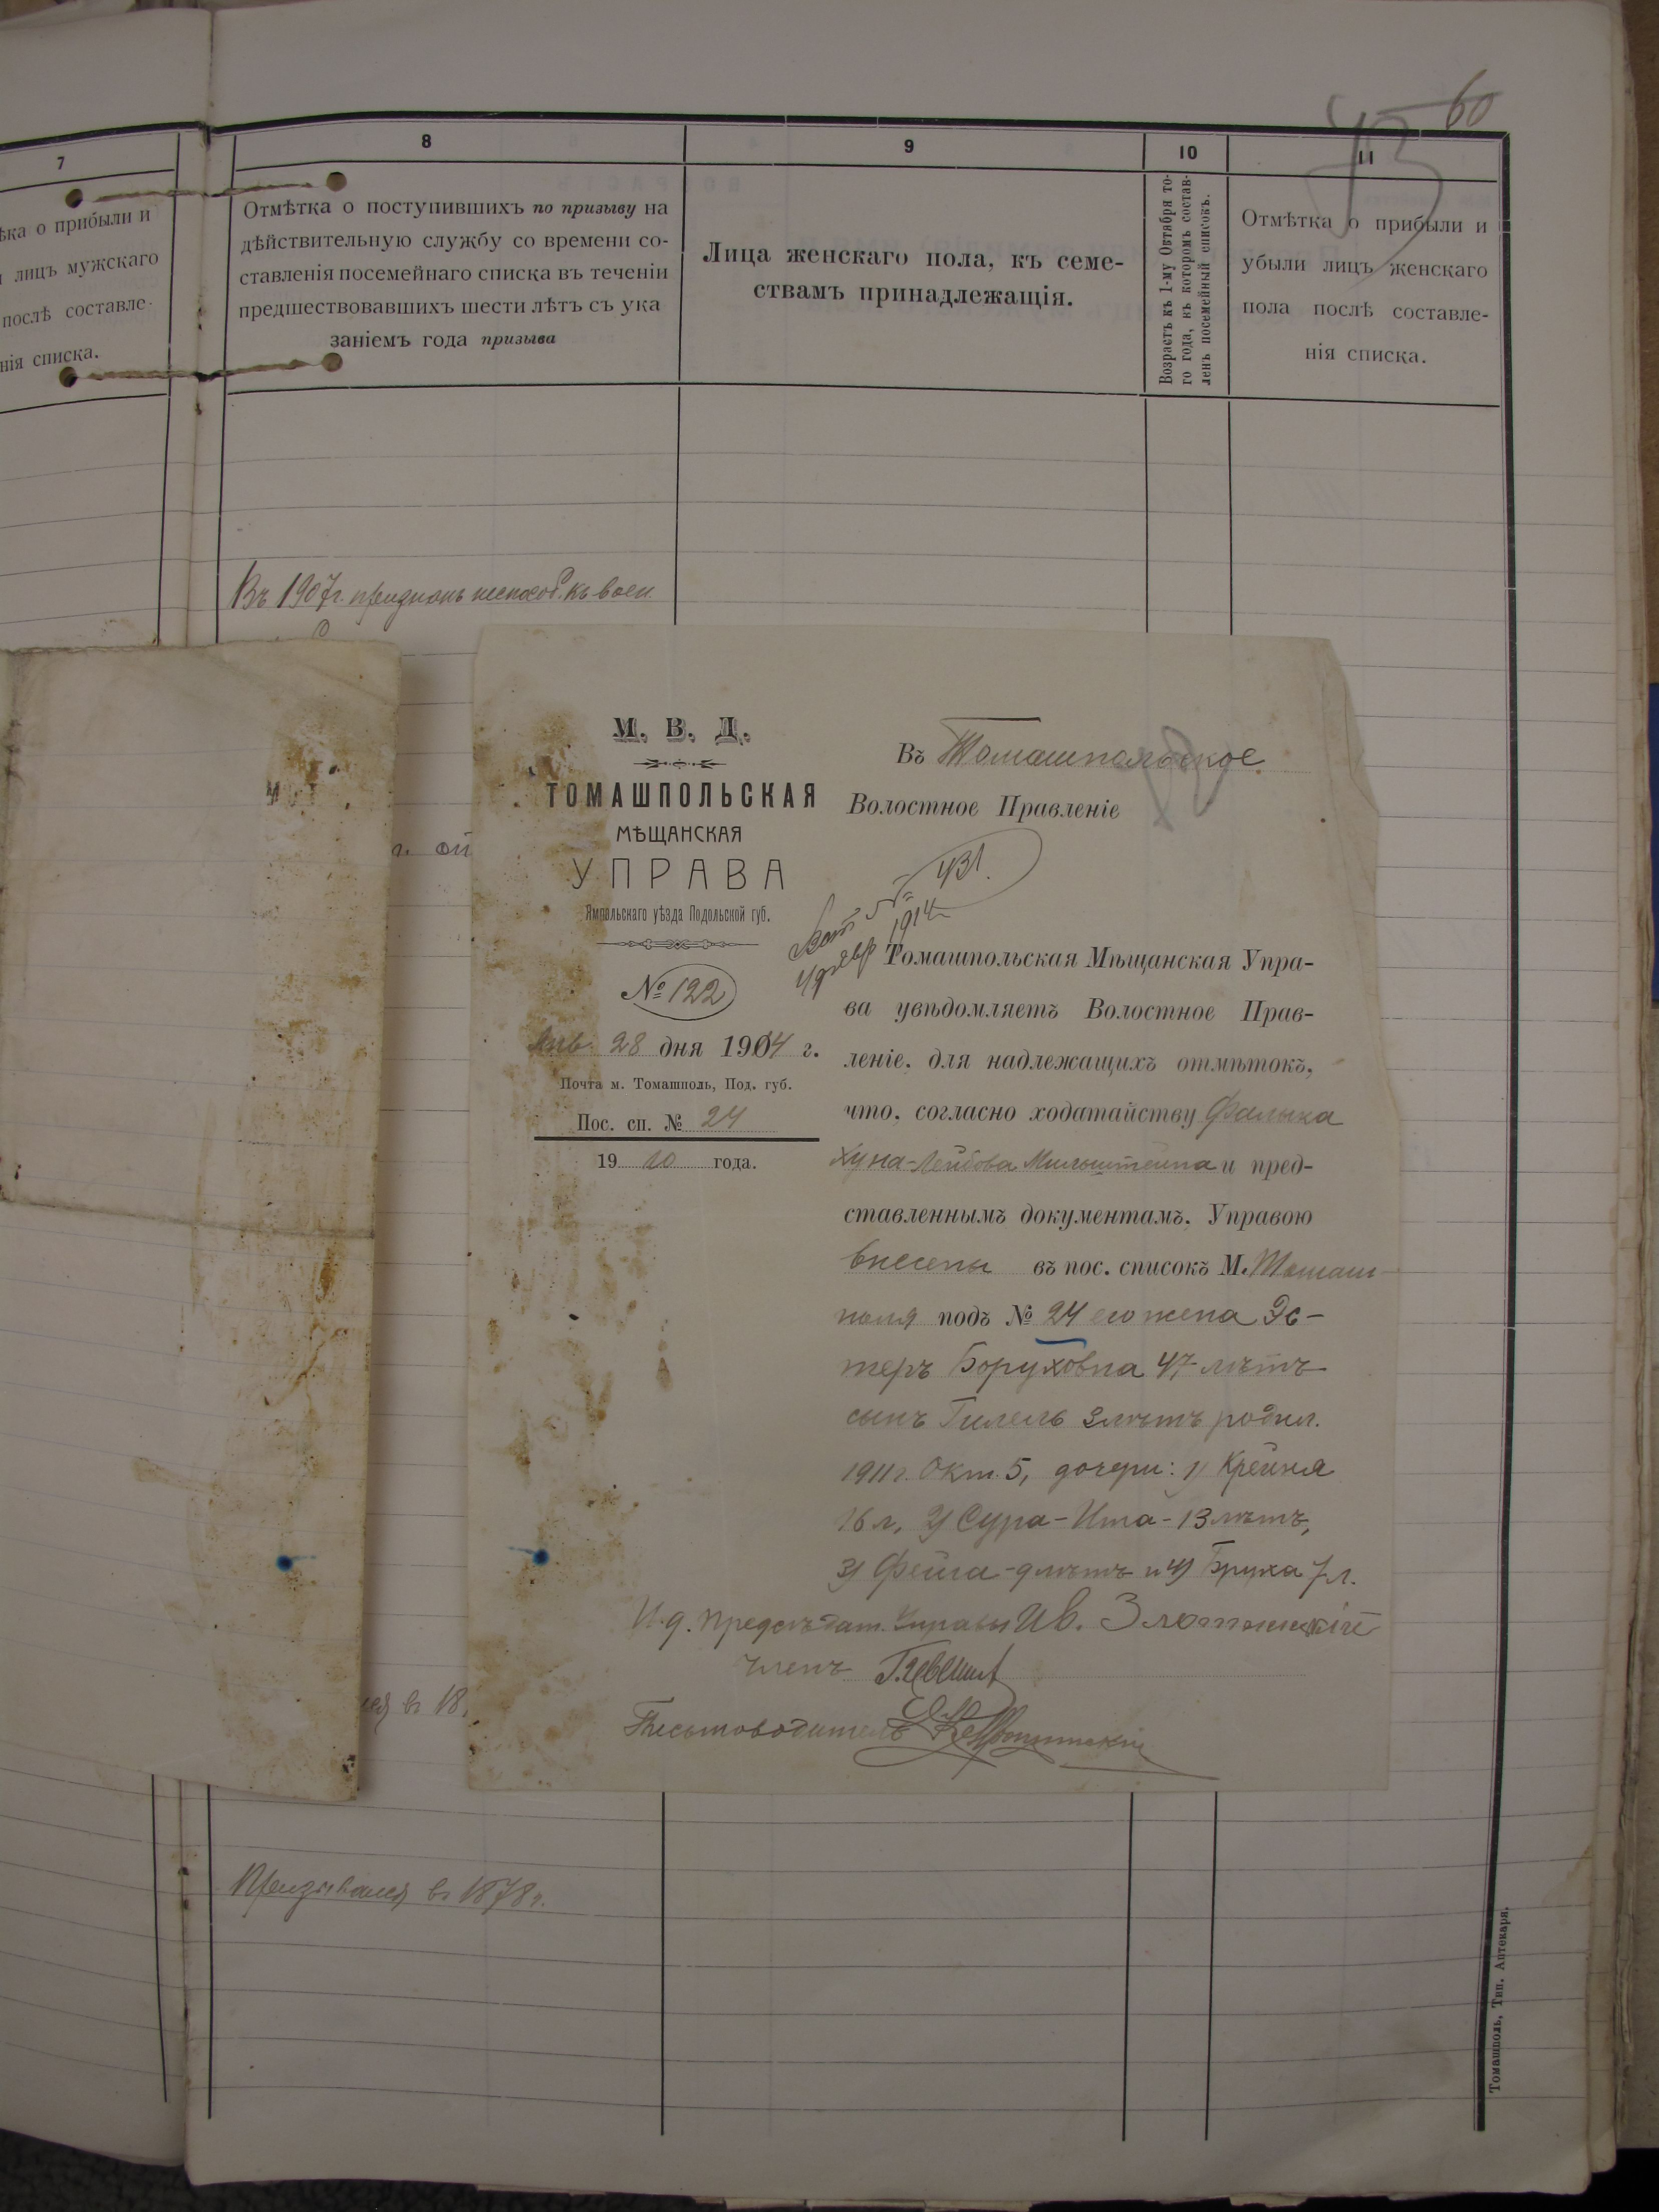 60
43
7
8
9
10
11
ѣка о прибыли и
и лицъ мужскаго
послѣ составле-
нія списка.
Отмѣтка о поступившихъ по призыву на
дѣйствительную службу со времени со-
ставленія посемейнаго списка въ теченіи
предшествовавшихъ шести лѣтъ съ ука
заніемъ года призыва
Лица женскаго пола, къ семе-
ствамъ принадлежащія.
Возрастъ къ 1-му Октября то-
го года, къ которомъ состав-
ленъ посемейный списокъ.
Отмѣтка о прибыли и
убыли лицъ женскаго
пола послѣ составле-
нія списка.
Въ 1907г. признанъ неспособ. къ воен.
М. В. Д.
ТОМАШПОЛЬСКАЯ
МѢЩАНСКАЯ
УПРАВА
Ямпольскаго уѣзда Подольской губ.
№ 122
Янв. 28 дня 1914 г.
Почта м. Томашполь, Под. губ.
Пос. сп. № 24
1910 года.
Въ Томашпольское
Волостное Правленіе
Вход № 431.
4 февр 1914
Томашпольская Мѣщанская Упра-
ва увѣдомляетъ Волостное Прав-
леніе, для надлежащихъ отмѣтокъ,
что, согласно ходатайству Фалыка
Хуна-Лейбова Мильштейна и пред-
ставленнымъ документамъ, Управою
внесены въ пос. списокъ М. Томаш-
поля подъ № 24 его жена Эс-
теръ Боруховна 47 лѣтъ
сынъ Гилель 3 лѣтъ родил.
1911 г. Окт. 5, дочери: 1) Крейня
16 л, 2) Сура-Ита-13 лѣтъ,
3) Фейга-9 лѣтъ и 4) Бруха 7 л.
И. д. Предсѣдат. Управы Ив.
Членъ
Письмоводитель
ся въ 18
Призывался въ 1878 г.
Томашполь, Тип. Аптекаря.